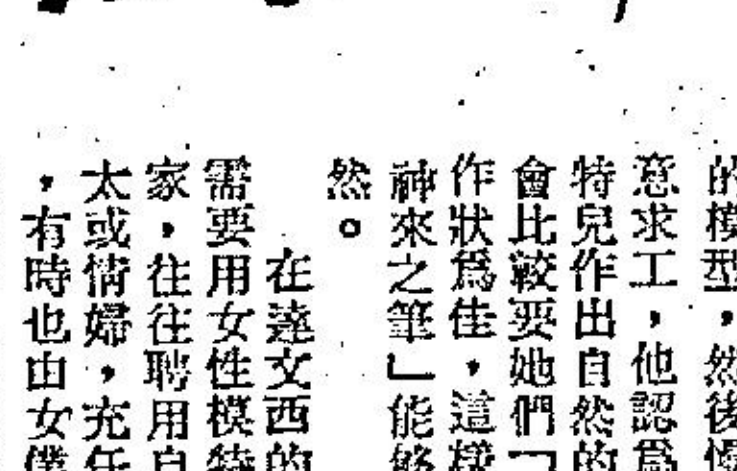 的模型，然後慢
意求工，他認爲
特兒作出自然的
會比較要她們「
作狀爲佳，這樣
神來之筆」能夠
然。
在達文西的
需要用女性模特
家，往往聘用自
太或情婦，充任
，有時也由女僕